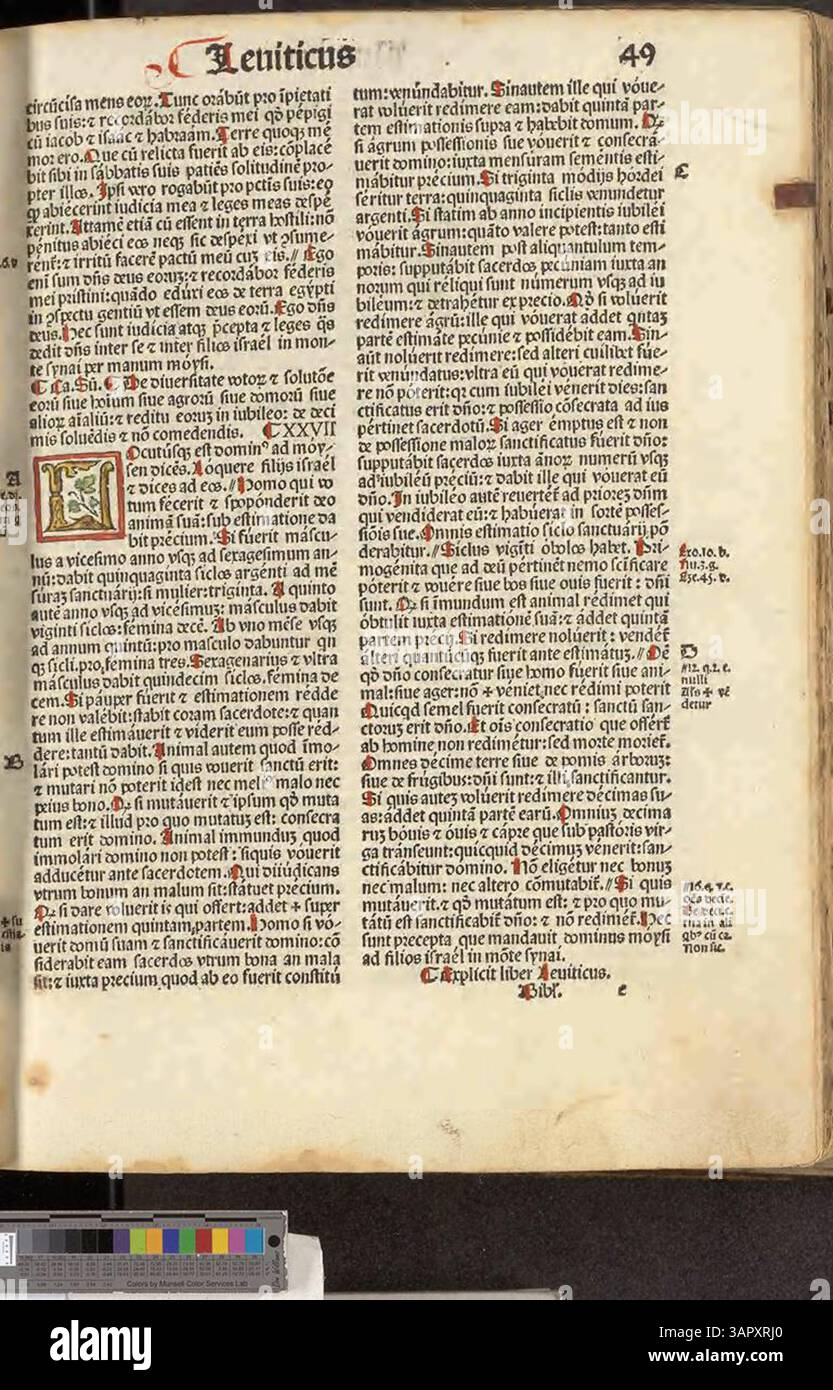 Leuiticus
49
circūcisa mens eoꝝ. Tunc orābūt pro īpietati
bus suis: ⁊ recordabor féderis mei qḋ pépigi
cū iacob ⁊ isaac ⁊ habraam. Terre quoqꝫ mē
mor ero. Que cū relicta fuerit ab eis: cōplacē
bit sibi in sábbatis suis patiēs solitudinē pro-
pter illos. Ipsi vero rogabūt pro pctīs suis: eo
ꝙ abiécerint iudicia mea ⁊ leges meas despé
xerint. Attamē etiā cū essent in terra hostili: nō
pénitus abiéci eos neqꝫ sic despéxi vt ↄsume-
renť: ⁊ irritū facerē pactū meū cuꝫ eis. // Ego
eni sum dn̄s deus eoruꝫ: ⁊ recordábor féderis
mei pristini: quādo edúxi eos de terra egýpti
in ↄspectu gentiū vt essem deus eorū. Ego dn̄s
deus. Hec sunt iudicia atqꝫ p̄cepta ⁊ leges q̄s
dedit dn̄s inter se ⁊ inter filios israél in mon-
te synai per manum móysi.
¶ Ca. Sū. ¶ De diuersitate votoꝝ ⁊ solutōe
eorū siue hoīum siue agrorū siue domorū siue
alioꝝ aīaliū: ⁊ reditu eoruꝫ in iubileo: de deci
mis soluēdis ⁊ nō comedendis. ¶ XXVII
LOcutúsqꝫ est dominꝰ ad móy-
sen dicēs. Lóquere filijs israél
⁊ dices ad eos. // Homo qui vo
tum fécerit ⁊ spopónderit deo
ánimā suā: sub estimatione da
bit précium. Si fúerit máscu-
lus a vicesimo anno vsqꝫ ad sexagesimum an-
nū: dabit quinquaginta siclos argēti ad mē
súrāꝫ sanctuárij: si mulier: triginta. A quinto
autē anno vsqꝫ ad vicésimuꝫ: másculus dabit
viginti siclos: fémina decē. Ab vno mēse vsqꝫ
ad annum quintū: pro másculo dabuntur qn
qꝫ sicli. pro fémina tres. Sexagenarius ⁊ vltra
másculus dabit quindecim siclos. fémina de
cem. Si páuper fúerit ⁊ estimationem rédde
re non valébit: stabit coram sacerdote: ⁊ quan
tum ille estimáuerit ⁊ viderit eum posse réd-
dere: tantū dabit. Animal autem quod īmo-
lári potest domino si quis vouerit sanctū erit:
⁊ mutari nō poterit idest nec melꝰ malo nec
peius bono. Qꝫ si mutáuerit ⁊ ipsum qḋ muta
tum est: ⁊ illud pro quo mutatuꝫ est: consecra
tum erit domino. Animal immunduꝫ quod
immolári domino non potest: siquis vóuerit
adducétur ante sacerdotem. Qui diiúdicans
vtrum bonum an malum sit: státuet précium.
Qꝫ si dare voluerit is qui offert: addet + super
estimationem quintam partem. Homo si vó-
uerit domū suam ⁊ sanctificáuerit domino: cō
siderabit eam sacerdos vtrum bona an mala
sit: ⁊ iuxta precium quod ab eo fuerit constitū
tum: venúndabitur. Sinautem ille qui vóue-
rat volúerit redimere eam: dabit quintā par-
tem estimationis supra ⁊ habēbit domum. Qꝫ
si ágrum possessionis sue vóuerit ⁊ consecrá-
uerit domino: iuxta mensúram sementis esti-
mábitur précium. Si triginta módijs hordei
séritur terra: quinquaginta siclis venundetur
argenti. Si statim ab anno incipientis iubiléi
vóuerit ágrum: quāto valere potest: tanto esti
mábitur. Sinautem post aliquantulum tem-
poris: supputábit sacerdos pecúniam iuxta an
norum qui réliqui sunt númerum vsqꝫ ad iu
bíleum: ⁊ detrahétur ex precio. Qḋ si voluerit
redimere ágrū: ille qui vóuerat addet qntaꝫ
partē estimáte pecúnie ⁊ possidébit eam. Sin-
aūt nolúerit redimere: sed alteri cuilibet fúe-
rit venúndatus: vltra eū qui vóuerat redime-
re nō póterit: qꝛ cum iubiléi vénerit dies: san
ctificatus erit dn̄o: ⁊ possessio cōsecrata ad ius
pértinet sacerdotū. Si ager émptus est ⁊ non
de possessione maioꝝ sanctificátus fúerit dn̄o:
supputábit sacerdos iuxta ānoꝝ numerū vsqꝫ
ad iubileū préciū: ⁊ dabit ille qui vóuerat eū
dn̄o. In iubiléo autē reuerteť ad priorēꝫ dn̄m
qui vendiderat eū: ⁊ habúerat in sortē posses-
siōis sue. Omnis estimatio siclo sanctuárij pō
derabitur. // Siclus vigīti óbolos habet. Pri-
mogénita que ad deū pértinēt nemo scīficare
póterit ⁊ vouére siue bos siue ouis fúerit: dn̄i
sunt. Qꝫ si īmundum est animal rédimet qui
óbtulit iuxta estimationē suā: ⁊ addet quintā
partem precij. Si redimere nolúerit: vendeť
alteri quantúcūqꝫ fúerit ante estimátuꝫ. // Oē
qḋ dn̄o consecratur siue homo fúerit siue ani-
mal: siue ager: nō + véniet nec rédimi poterit
Quicqd semel fuerit consecratū: sanctū san-
ctorum erit dn̄o. Et oīs consecratio que offerť
ab homine non redimétur: sed morte morieť.
Omnes décime terre siue de pomis árboruꝫ:
siue de frúgibus: dn̄i sunt: ⁊ illi sanctificantur.
Si quis auteꝫ volúerit redimere décimas su-
as: addet quintā partē earū. Omniuꝫ décima
ruꝫ bóuis ⁊ óuis ⁊ cápre que sub pastóris vir-
ga tránseunt: quicquid décimuꝫ vénerit: san-
ctificábitur dómino. Nō eligétur nec bonuꝫ
nec malum: nec altero cōmutabiť. // Si quis
mutáuerit. ⁊ qḋ mutátum est: ⁊ pro quo mu-
tátū est sanctificabiť dn̄o: ⁊ nō redimeť. Hec
sunt precepta que mandauit dominus móysi
ad filios israél in mōte synai.
¶ Explicit liber Leuiticus.
Bibl. e
A
B
+ su
C
Exo.30.b.
Nu.3.g.
Eze.45.d.
D
//12.q.2.c.
nulli
Alſ + vē
detur
//16.q.7.c.
Non sic.
Colors by Munsell Color Services Lab
alamy
Image ID: 3APXRJ0
www.alamy.com